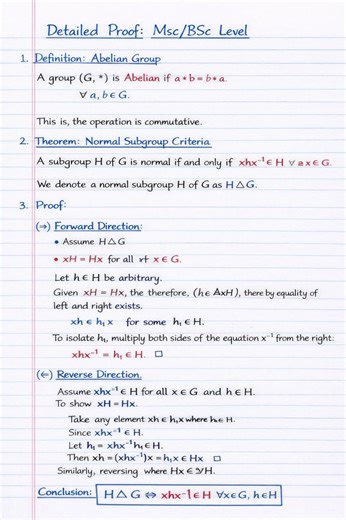 Detailed Proof: Msc/BSc Level
1. Definition: Abelian Group
A group (G, *) is Abelian if a * b = b * a.
∀ a, b ∈ G.
This is, the operation is commutative.
2. Theorem: Normal Subgroup Criteria
A subgroup H of G is normal if and only if xhx⁻¹ ∈ H ∀ a x ∈ G.
We denote a normal subgroup H of G as H △ G.
3. Proof:
(⇒) Forward Direction:
• Assume H △ G
• xH = Hx for all x ∈ G.
Let h ∈ H be arbitrary.
Given xH = Hx, the therefore, (h ∈ AxH), there by equality of
left and right exists.
xh ∈ h₁ x for some h₁ ∈ H.
To isolate h₁, multiply both sides of the equation x⁻¹ from the right:
xhx⁻¹ = h₁ ∈ H. □
(⇐) Reverse Direction.
Assume xhx⁻¹ ∈ H for all x ∈ G and h ∈ H.
To show xH = Hx.
Take any element xh ∈ h₁x where h ∈ H.
Since xhx⁻¹ ∈ H.
Let h₁ = xhx⁻¹h₁ ∈ H.
Then xh = (xhx⁻¹)x = h₁x ∈ Hx □
Similarly, reversing where Hx ∈ H.
Conclusion: H △ G ⇔ xhx⁻¹ ∈ H ∀x∈G, h∈H